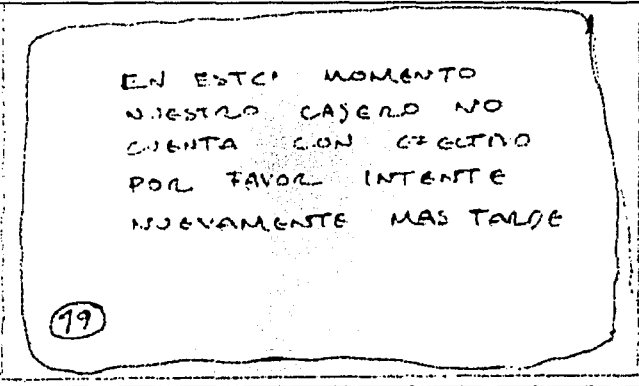 EN ESTE MOMENTO
NUESTRO CAJERO NO
CUENTA CON EFECTIVO
POR FAVOR INTENTE
NUEVAMENTE MAS TARDE
19